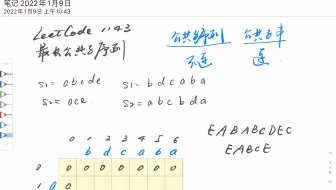 笔记 2022年1月9日
2022年1月9日 上午10:43
LeetCode 1143
最长公共子序列
公共子序列 公共子串
不连 连
S1 = abcde S1 = bdcaba
S2 = ace S2 = abcbda
0 1 2 3 4 5 6
b d c a b a
0 0 0 0 0 0 0 0
1 a 0
EABABCDEC
EABCE